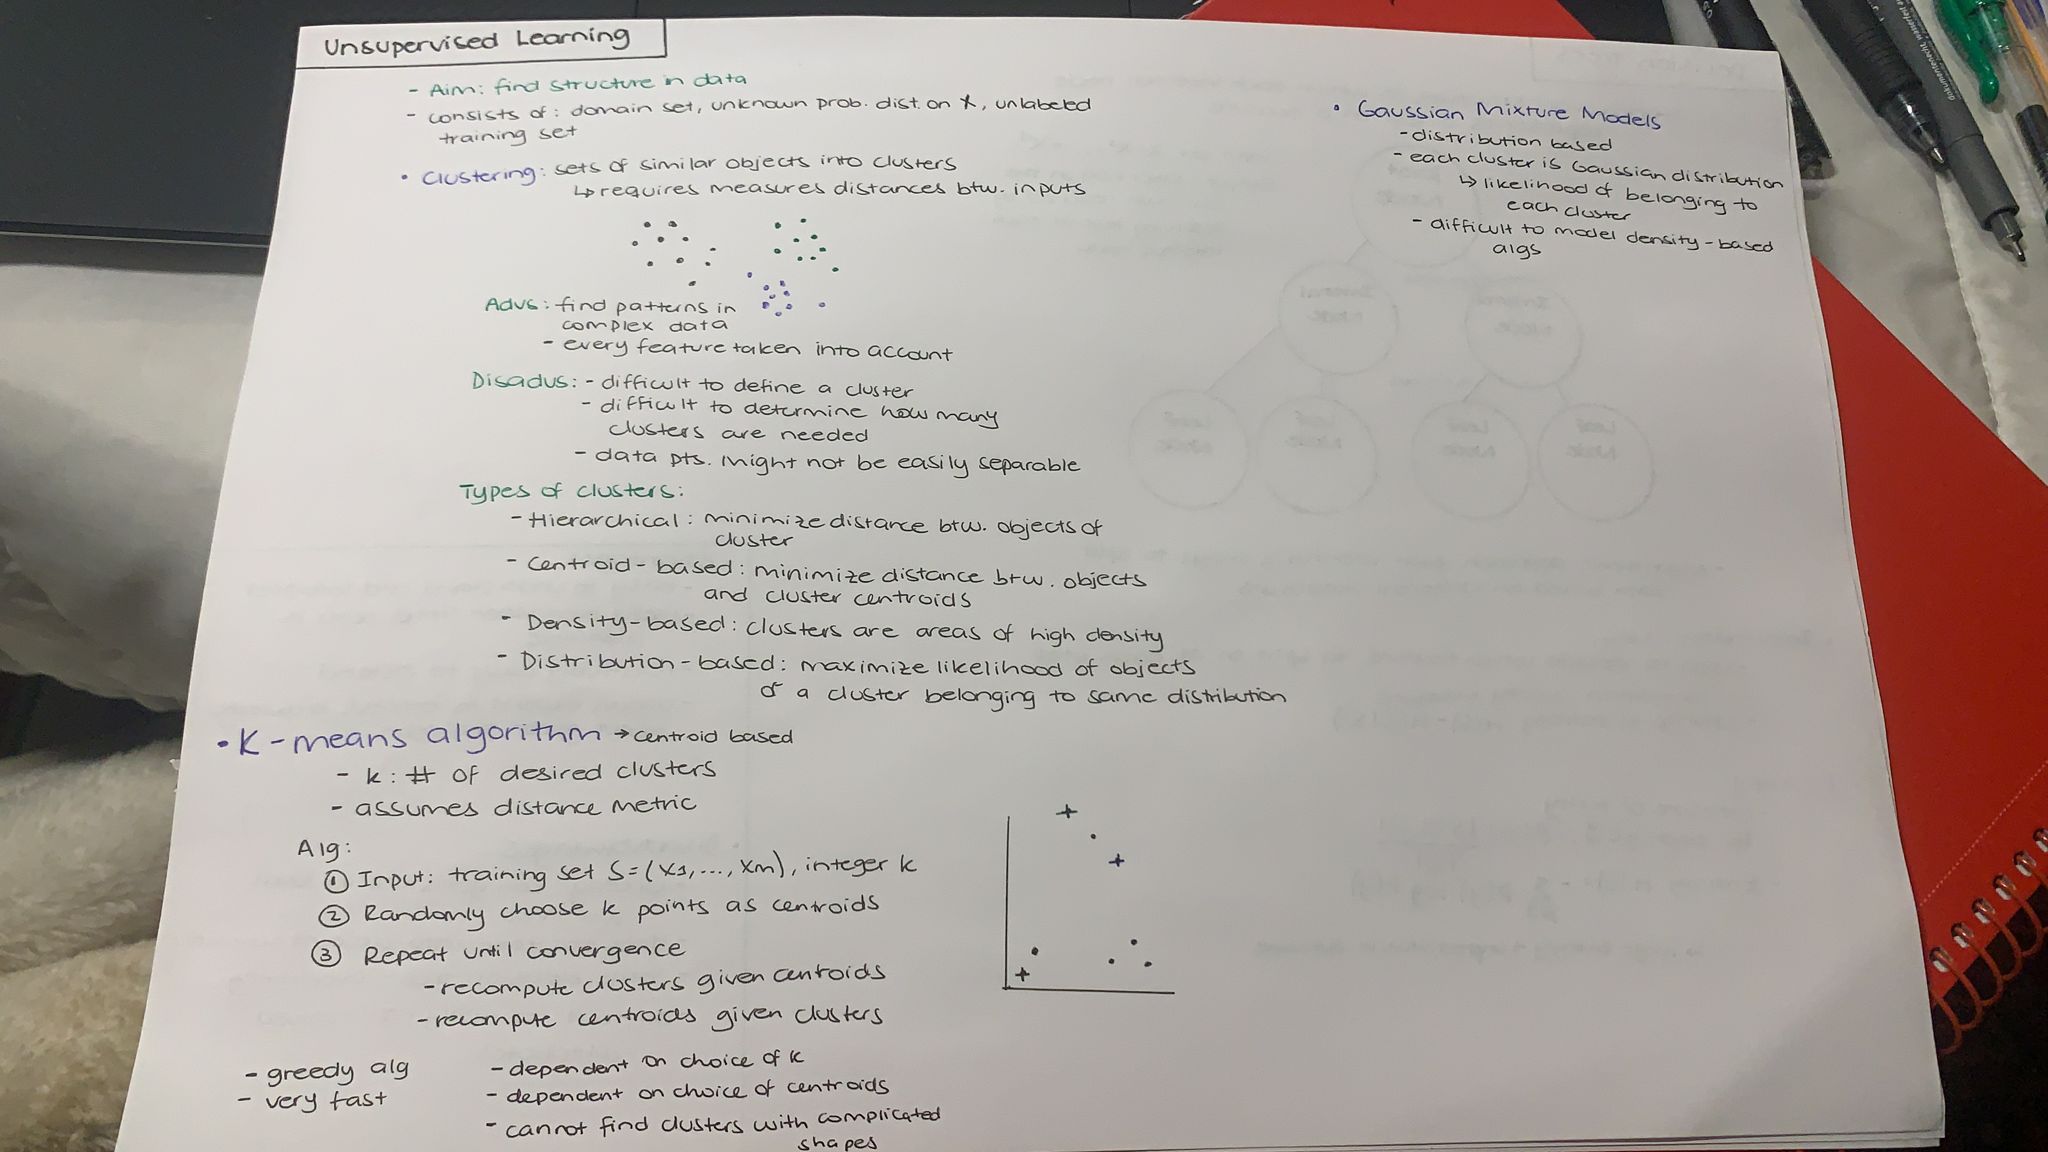 Unsupervised Learning
- Aim: find structure in data
- consists of: domain set, unknown prob. dist. on X, unlabeled
training set
• Clustering: sets of similar objects into clusters
↳ requires measures distances btw. inputs
Advs: find patterns in
complex data
- every feature taken into account
Disadvs: - difficult to define a cluster
- difficult to determine how many
clusters are needed
- data pts. might not be easily separable
Types of clusters:
- Hierarchical: minimize distance btw. objects of
cluster
- Centroid-based: minimize distance btw. objects
and cluster centroids
- Density-based: clusters are areas of high density
- Distribution-based: maximize likelihood of objects
of a cluster belonging to same distribution
• K-means algorithm → centroid based
- k: # of desired clusters
- assumes distance metric
Alg:
① Input: training set S=(x1,...,xm), integer k
② Randomly choose k points as centroids
③ Repeat until convergence
- recompute clusters given centroids
- recompute centroids given clusters
- greedy alg
- very fast
- dependent on choice of k
- dependent on choice of centroids
- cannot find clusters with complicated
shapes
• Gaussian Mixture Models
- distribution based
- each cluster is Gaussian distribution
↳ likelihood of belonging to
each cluster
- difficult to model density-based
algs